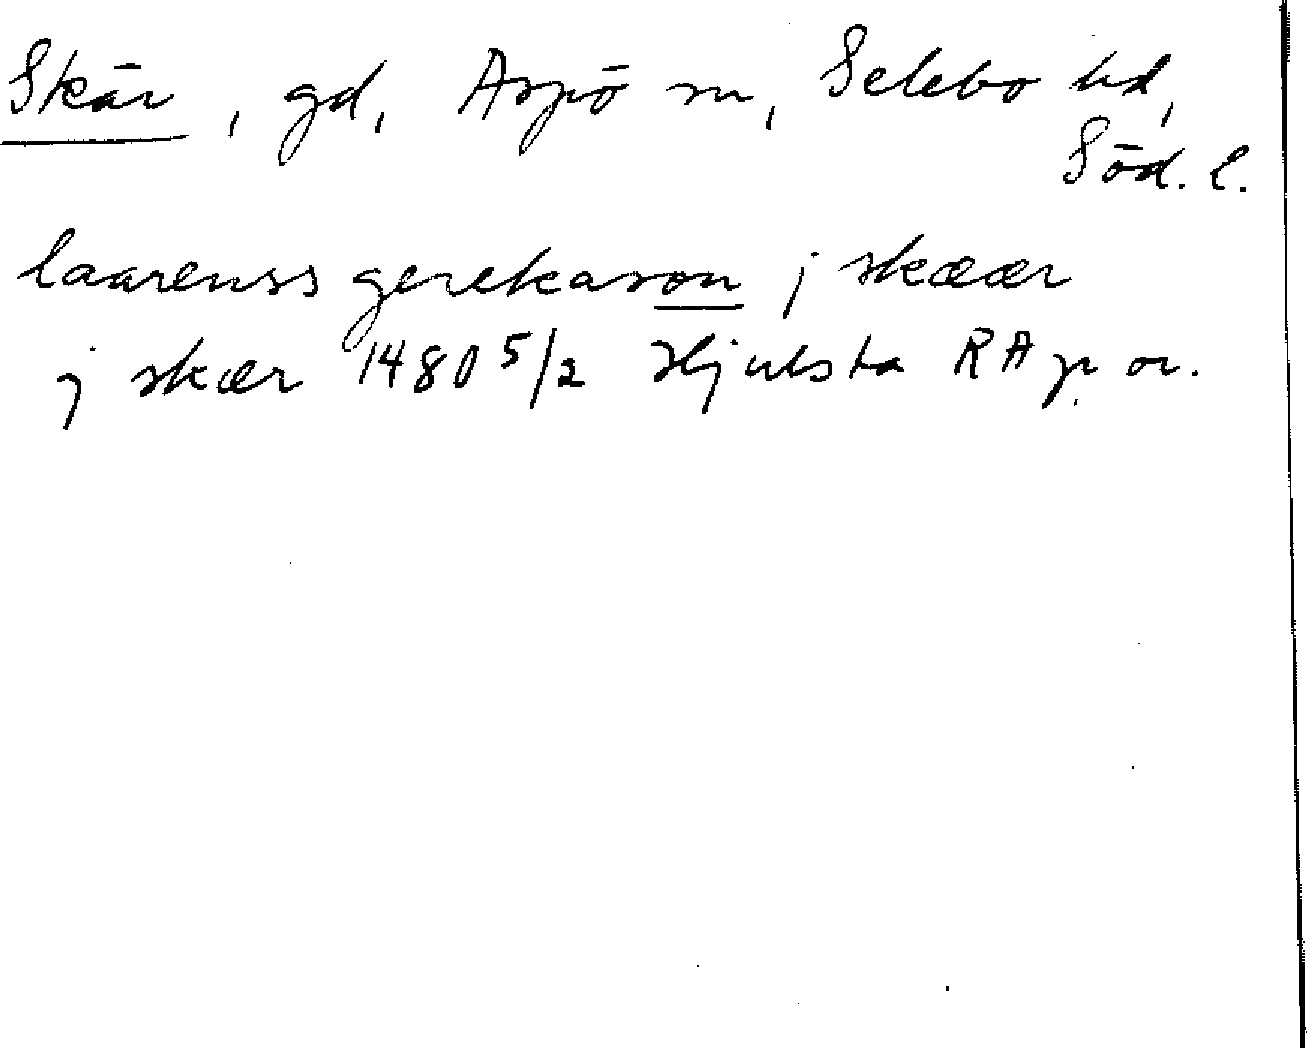 Skär, gd, Aspö sn, Selebo hd,
Söd. l.
laarenss gerekason j skæær
j skær 1480 5/2 Hjulsta RA p. or.